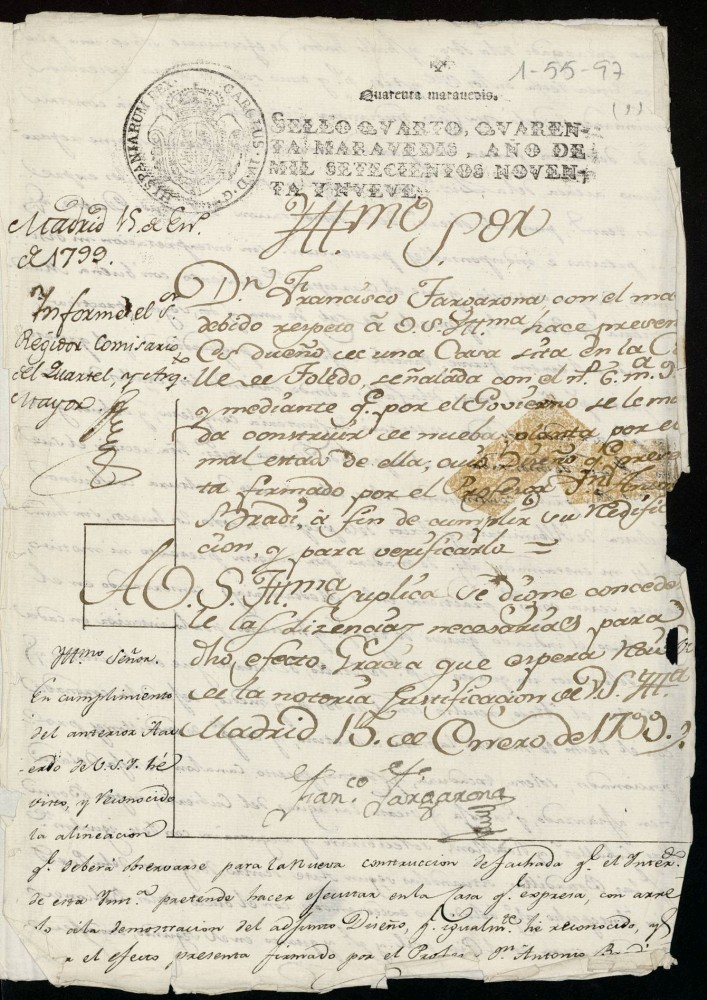 1-55-97
Quarenta maravedis.
SELLO QVARTO, QVAREN-
TA MARAVEDIS, AÑO DE
MIL SETECIENTOS NOVEN-
TA Y NVEVE.
HISPANIARUM REX CAROLUS IV D. G.
Madrid 15 de En.ro
de 1799.
Informe el S.r
Regidor Comisario
del Quartel, y Arq.to
Mayor.
Ill.mo S.or
D.n Francisco Targarona con el ma
debido respeto à V.S. Ill.ma hace presen
Ces dueño de una Casa sita en la C
lle de Toledo, señalada con el n.º 6. m.a 9
y mediante q.e por el Govierno se le ma
da construir de nueba planta por el
mal estado de ella, cuio Diseño q.e presen
ta firmado por el Profesor D.n
Bradi, à fin de cumplir su Redifi
cion, y para verificarlo =
A V. S. Ill.ma suplica se digne concede
le las lizencias necesarias para
dho efecto. Gracia que espera
de la notoria Justificacion de V.S. Ill.ma
Madrid 15. de Enero de 1799.
Fran.co Targarona
Ill.mo Señor.
En cumplimiento
del anterior Acu
erdo de V.S.I. hé
visto, y reconocido
la alineacion
q.e deberá observarse para la Nueva construccion de fachada q.e el Inter.do
de esta Inst.a pretende hacer ejecutar en la Casa q.e expresa, con arre
lo à la demostracion del adjunto Diseño, q.e igualm.te hé reconocido, y
r el efecto presenta firmado por el Profes.r D.n Antonio